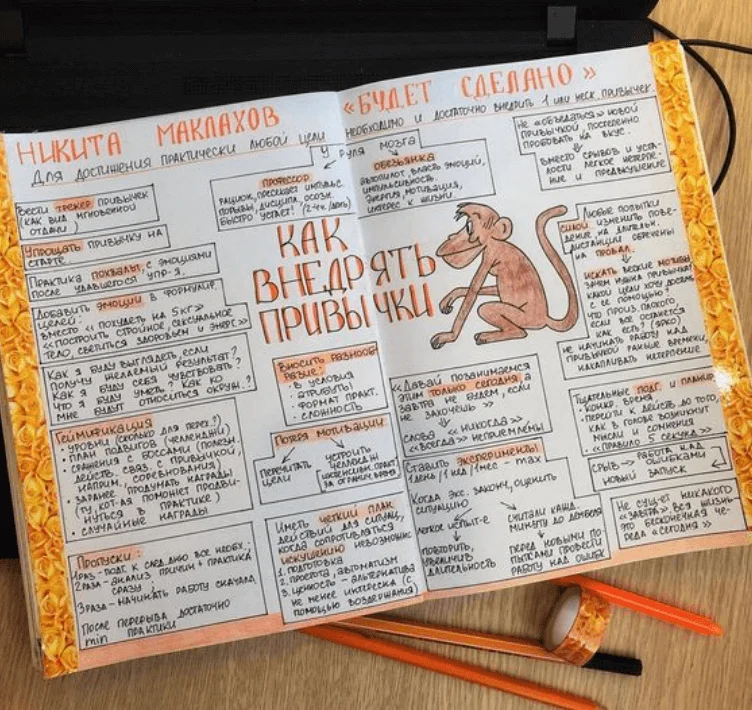 НИКИТА МАКЛАХОВ
«БУДЕТ СДЕЛАНО»
Для достижения практически любой цели необходимо и достаточно внедрить 1 или неск. привычек.
КАК
ВНЕДРЯТЬ
ПРИВЫЧКИ
Вести трекер привычек
(как вид мгновенной
отдачи)
Упрощать привычку на
старте
Практика похвалы, с эмоциями
после удавшегося упр-я.
Добавить эмоции в формулир.
целей:
вместо «похудеть на 5 кг»
«построить стройное, сексуальное
тело, светиться здоровьем и энерг.»
Как я буду выглядеть, если
получу желаемый результат?
Как я буду себя чувствовать?
Что я буду уметь? Как ко
мне будут относиться окруж.?
Геймификация
• уровни (сколько для перех.?)
• план подвигов (челленджи)
• сражения с боссами (полезн.
действ. связ. с привычкой,
наприм., соревнования)
• заранее продумать награды
(ту, кот-ая поможет продви-
нуться в практике)
• случайные награды
Пропуски:
1 раз - подг. к след. дню все необх.
2 раза - анализ причин + практика
сразу
3 раза - начинать работу сначала
После перерыва достаточно
min практики
У руля мозга
профессор
рацион., пресекает импульс.
порывы, дисципл., осозн.
быстро устает! (2-4 ч./день)
обезьянка
автопилот, власть эмоций,
импульсивность.
Энергия, мотивация,
интерес к жизни.
Вносить разнооб-
разие:
• в условия
• атрибуты
• формат практ.
• сложность
Потеря мотивации
перечитать
цели
устроить
челлендж
(интенсивн. практ.
за огранич. время)
Иметь четкий план
действий для ситуац.,
когда сопротивляться
искушению невозможно
1. подготовка
2. простота, автоматизм
3. ценность - альтернатива
не менее интересна (с
помощью воздержания)
Не «объедаться» новой
привычкой, постепенно
пробовать на вкус.
Вместо срывов и уста-
лости легкое нетерпе-
ние и предвкушение
Любые попытки
силой изменить пове-
дение на длительн.
дистанции обречены
на провал.
Искать веские мотивы
Зачем нужна привычка?
Какой цели хочу достичь
с ее помощью?
Что произ. плохого,
если все останется
как есть? (ярко)
Не начинать работу над
привычкой раньше времени,
накапливать нетерпение
«Давай позанимаемся
этим только сегодня, а
завтра не будем, если
не захочешь»
Слова «никогда»
«всегда» неприемлемы
Ставить эксперименты
1 день / 1 нед / 1 мес - max
Когда экс. законч., оценить
ситуацию
легкое испыт-е
повторить,
увеличив
длительность
считали кажд.
минуту до дембеля
перед новыми по-
пытками провести
работу над ошибк.
Тщательные подг. и планир.
• Конкр. время
• перейти к действ. до того,
как в голове возникнут
мысли и сомнения
«правило 5 секунд»
Срыв → работа над
ошибками
новый запуск
Не сущ-ет никакого
«завтра». Вся жизнь -
это бесконечная че-
реда «сегодня»